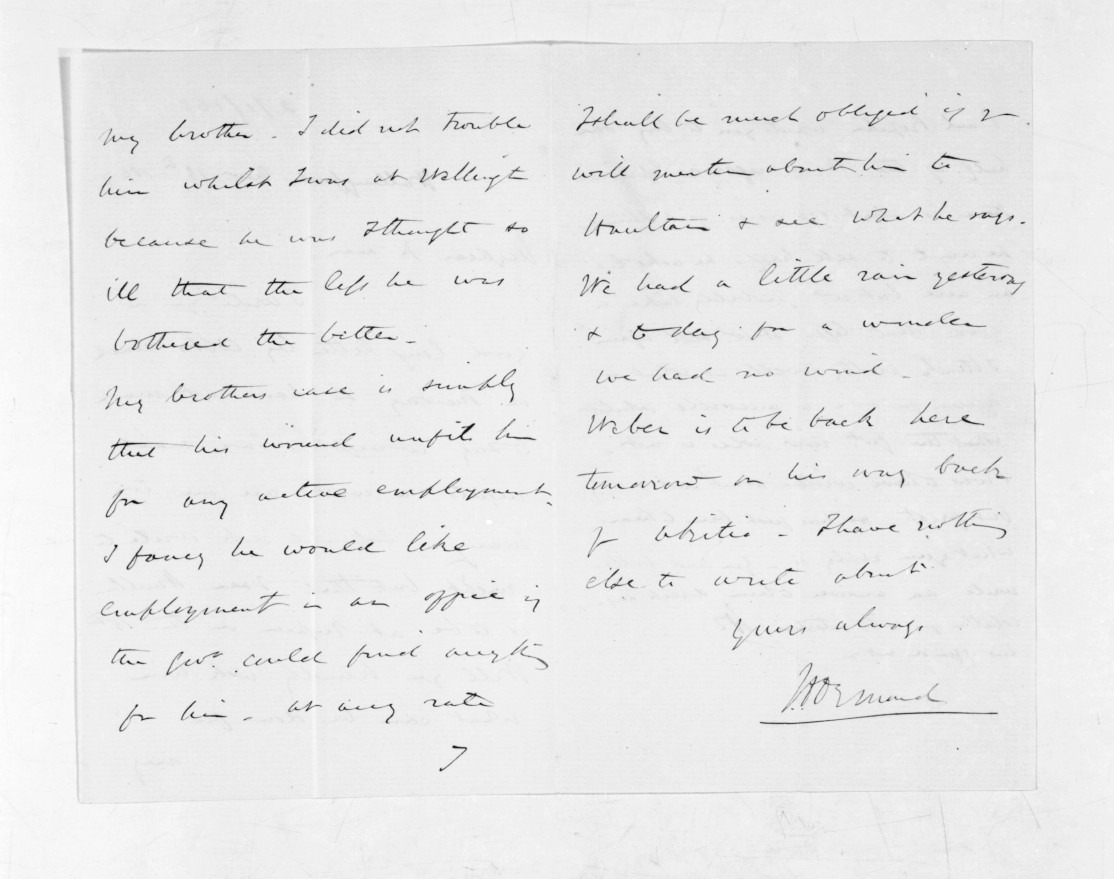 my brother. I did not trouble
him whilst I was at Wellingtn
because he was I thought so
ill that the less he was
bothered the better.
My brothers case is simply
that his wound unfits him
for any active employment.
I fancy he would like
employment in an office if
the govt could find anything
for him. at any rate
I
I shall be much obliged if yr
will mention about him to
Haultain & see what he says.
We had a little rain yesterday
& to day for a wonder
we had no wind.
Weber is to be back here
tomorrow on his way back
I have nothing
else to write about
yours always
JDOrmond